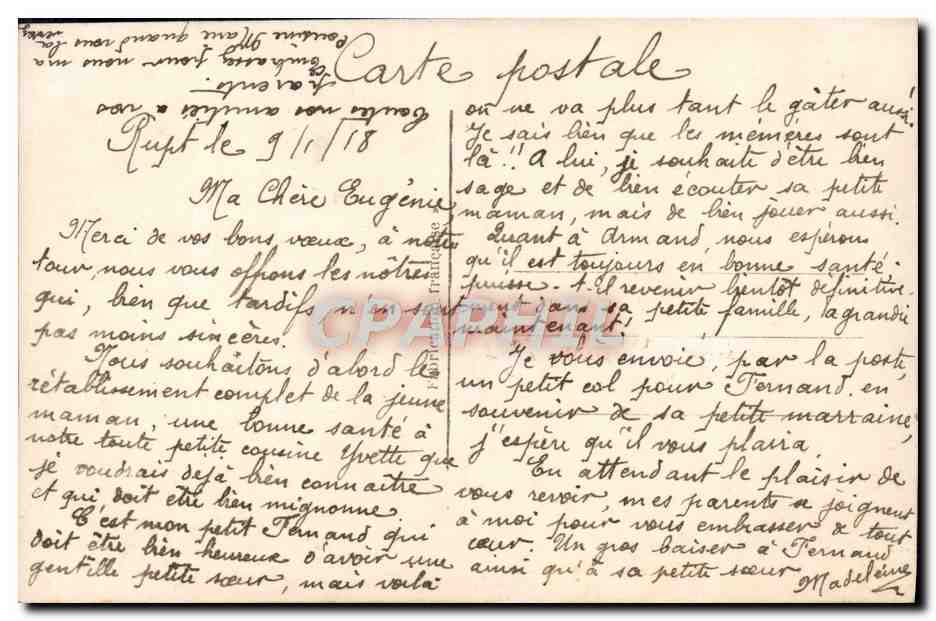 Carte postale
Rupt le 9/1/18
Ma Chère Eugénie
Merci de vos bons vœux, à notre
tour, nous vous offrons les nôtres
qui, bien que tardifs n'en sont
pas moins sincères.
Nous souhaitons d'abord le
rétablissement complet de la jeune
maman, une bonne santé à
notre toute petite cousine Yvette que
je voudrais dejà bien connaître
et qui doit être bien mignonne
C'est mon petit Fernand qui
doit être bien heureux d'avoir une
gentille petite sœur, mais voilà
on ne va plus tant le gâter aussi.
Je sais bien que les mémères sont
là!! A lui, je souhaite d'être bien
sage et de bien écouter sa petite
maman, mais de bien jouer aussi.
Quant à Armand, nous espérons
qu'il est toujours en bonne santé.
puisse-t-il revenir bientôt définitive-
ment dans sa petite famille, agrandie
maintenant!
Je vous envoie, par la poste,
un petit col pour Fernand en
souvenir de sa petite marraine,
j'espère qu'il vous plaira.
En attendant le plaisir de
vous revoir, mes parents se joignent
à moi pour vous embrasser de tout
cœur. Un gros baiser à Fernand
ainsi qu'à sa petite sœur
Madeleine
Toutes nos amitiés à vos
parents.
embrassez pour nous ma
cousine Marie quand vous la
verrez
Fabrication française
CPAPHIL